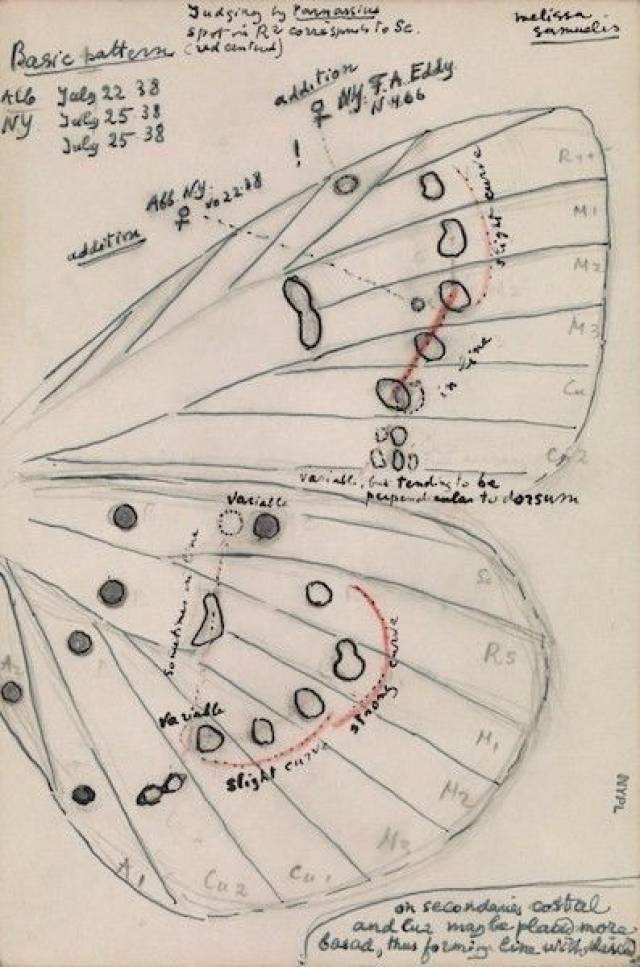 Judging by Parnassius
spot in R2 corresponds to Sc.
(red centred)
melissa
samuelis
Basic pattern
Alb July 22 38
NY July 25 38
July 25 38
addition
♀ NY. F.A. Eddy.
N 4.66
!
Alb. NY.
♀ 22.38
addition
slight curve
in line
R4+5
M1
M2
M3
Cu
Cu2
variable, but tending to be
perpendicular to dorsum
variable
sometimes in line
variable
slight curve
strong curve
Sc
R5
M1
M2
M3
Cu1
Cu2
A1
A2
NYPL
on secondaries costal
and cu2 may be placed more
basad, thus forming line with discal